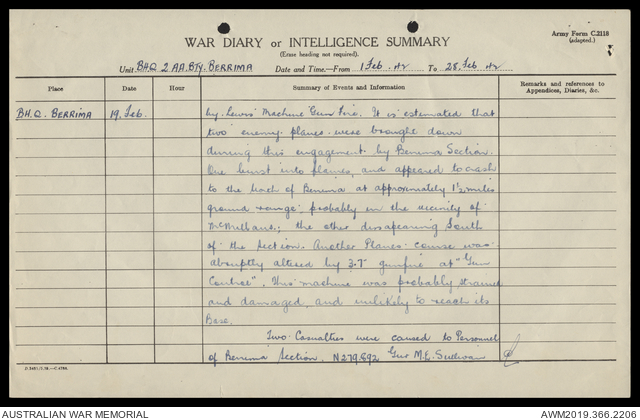 Army Form C.2118
(adapted.)
WAR DIARY or INTELLIGENCE SUMMARY
(Erase heading not required).
Unit BHQ 2 A.A. BTY. BERRIMA Date and Time—From 1 Feb. 42 To 28. Feb. 42
Place
Date
Hour
Summary of Events and Information
Remarks and references to
Appendices, Diaries, &c.
BH.Q. BERRIMA 19. Feb. by Lewis Machine Gun Fire. It is estimated that
two enemy planes were brought down
during this engagement by Berrima Section.
One burst into flames, and appeared to crash
to the back of Berrima at approximately 1½ miles
ground range; probably in the vicinity of
McMillans; the other disappearing South
of the Section. Another Planes course was
abruptly altered by 3.7 gunfire at "Gun
Control". This machine was probably strained
and damaged, and unlikely to reach its
Base.
Two Casualties were caused to Personnel
of Berrima Section. N279692 Gnr M.E. Sullivan
AUSTRALIAN WAR MEMORIAL
AWM2019.366.2206